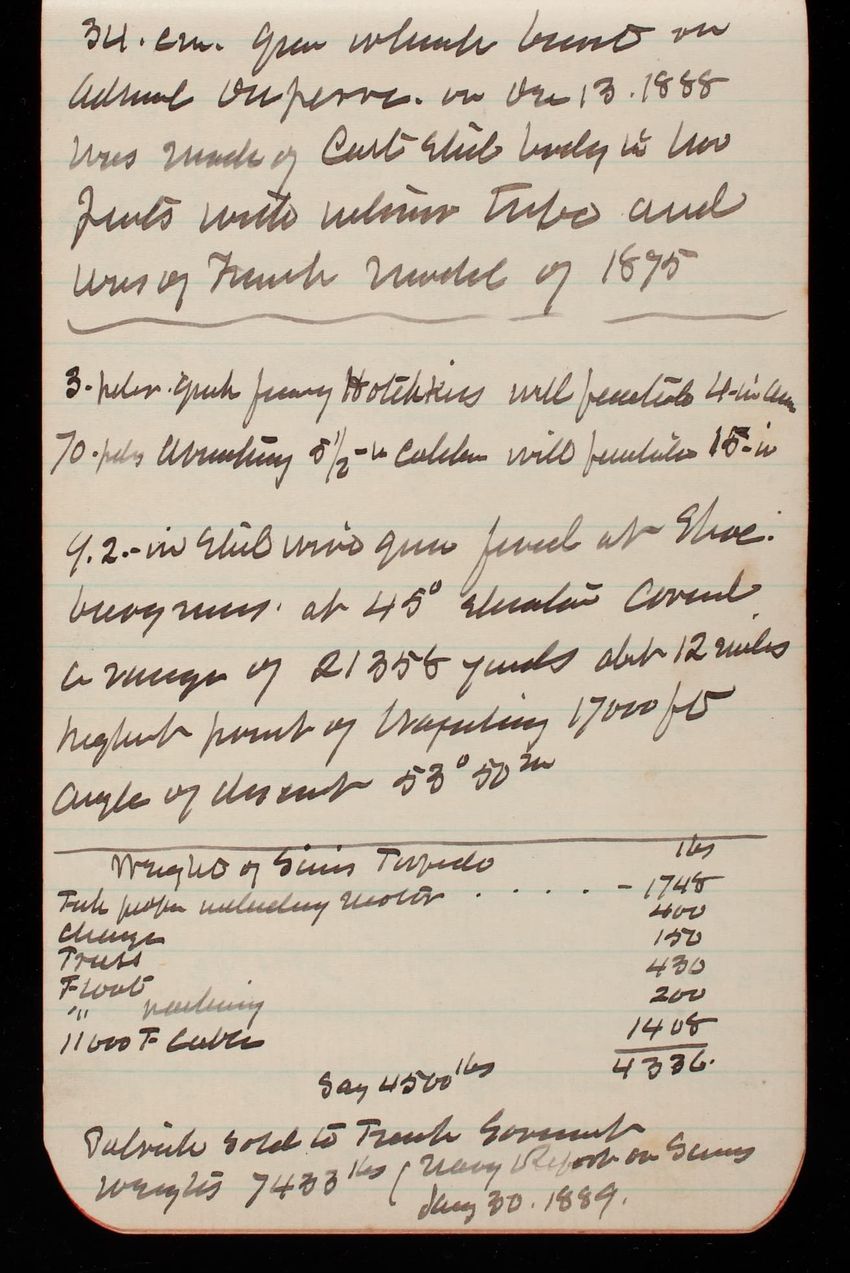 34. cm. gun which burst on
Admiral Duperre. on Dec 13. 1888
was made of Cast Steel body in two
parts with interior Tube and
was of French Model of 1875
3. pdr. quick firing Hotchkiss will penetrate 4-in
70. pdr Armstrong 5 1/2-in Caliber will penetrate 15-in
9.2.-in Steel wire gun fired at Shoe.
buryness. at 45° elevation Covered
a range of 21358 yards abt 12 miles
highest point of trajectory 17000 ft
Angle of descent 53° 50m
Weight of Sims Torpedo lbs
Fish proper including motor . . . . - 1748
Charge 400
Truss 150
Float 430
" 200
11000 F Cable 1408
4336.
Say 4500 lbs
Patrick sold to French Government
Weighs 7433 lbs (Navy Report on Guns
Jany 30. 1889.